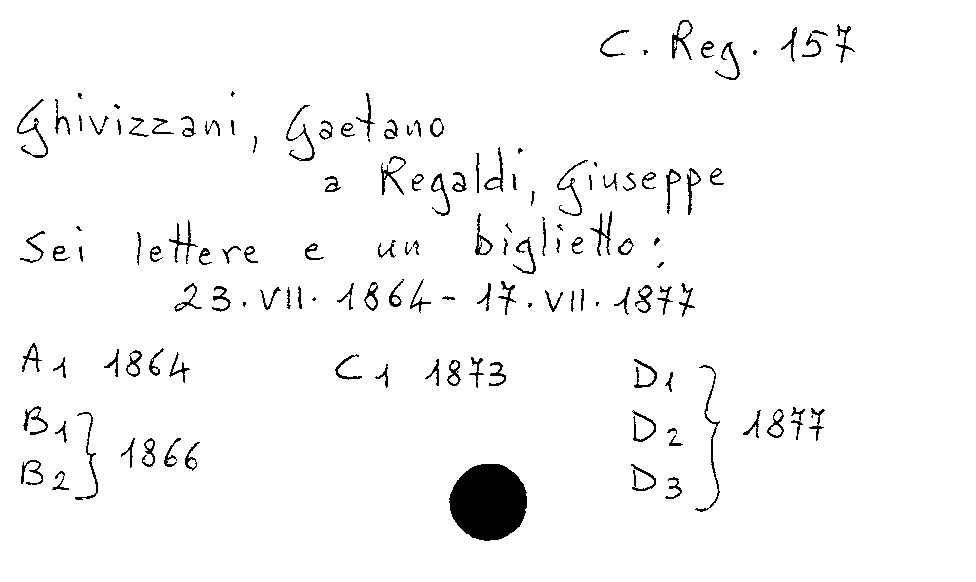 C. Reg. 157
Ghivizzani, Gaetano
a Regaldi, Giuseppe
Sei lettere e un biglietto:
23.VII. 1864 - 17.VII. 1877
A1 1864 C1 1873 D1
B1 } 1866 D2 } 1877
B2 D3